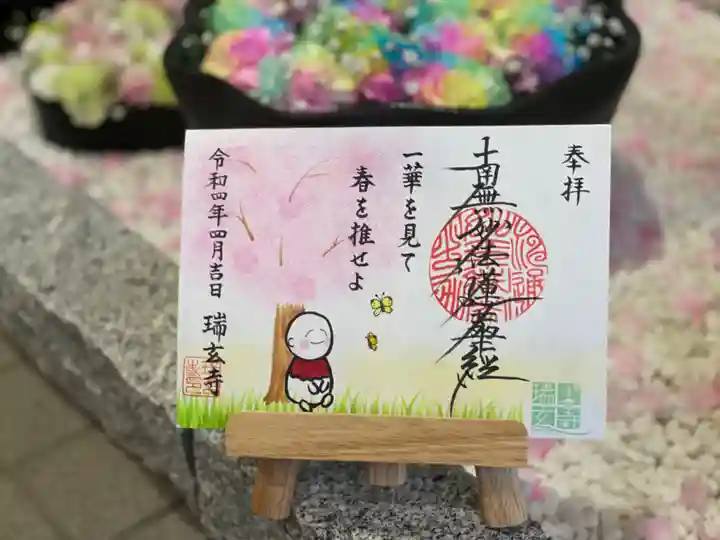 奉拝
南無妙法蓮華経
一華を見て
春を推せよ
令和四年四月吉日 瑞玄寺